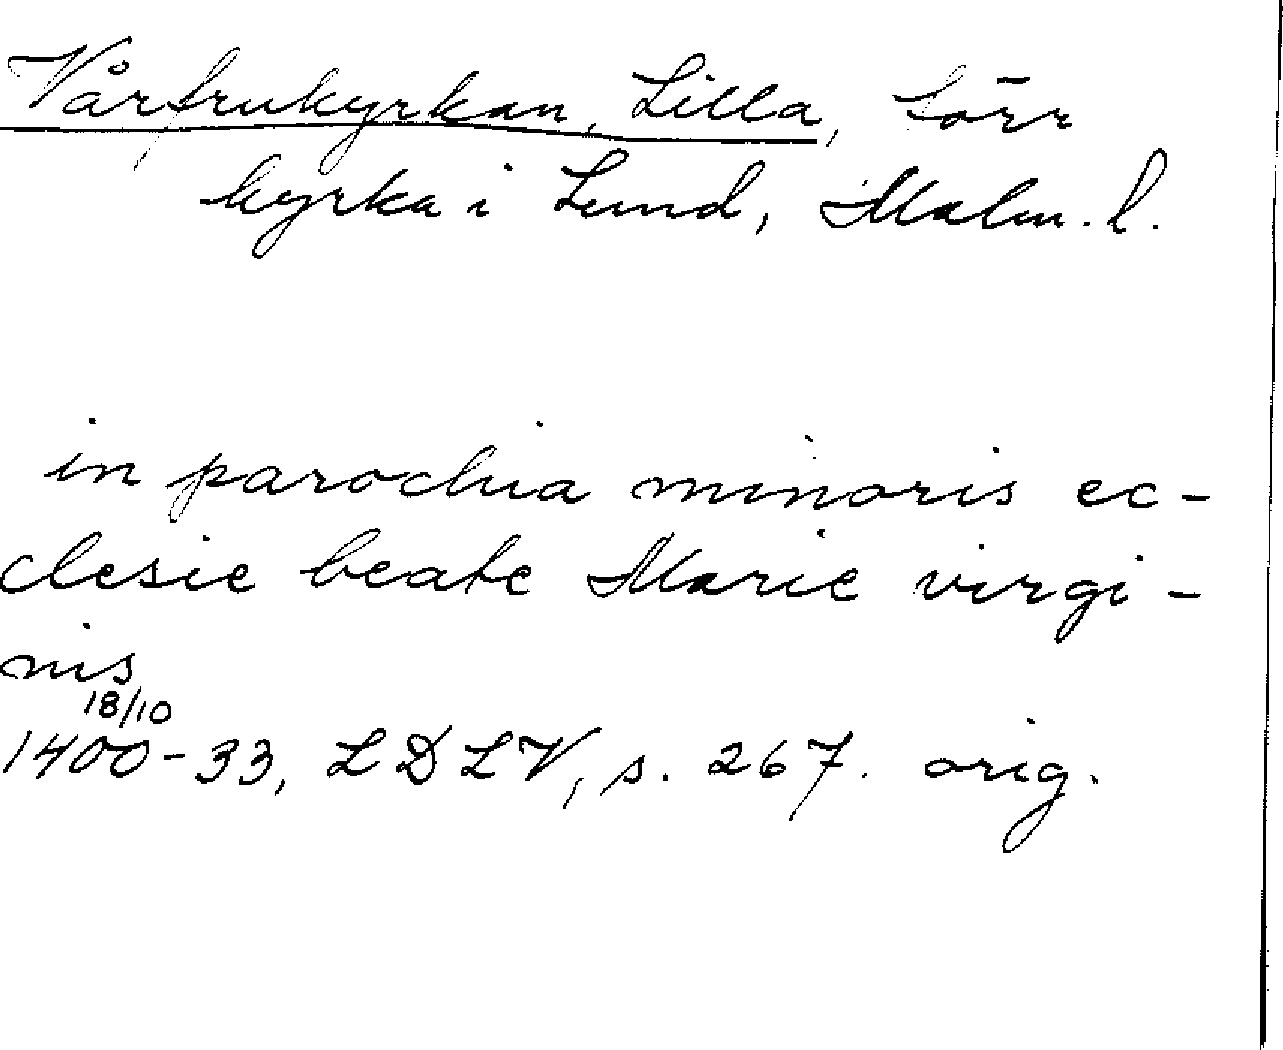 Vårfrukyrkan, Lilla, förr
kyrka i Lund, Malm. l.
in parochia minoris ec-
clesie beate Marie virgi-
nis
18/10
1400-33, LDLV, s. 267. orig.